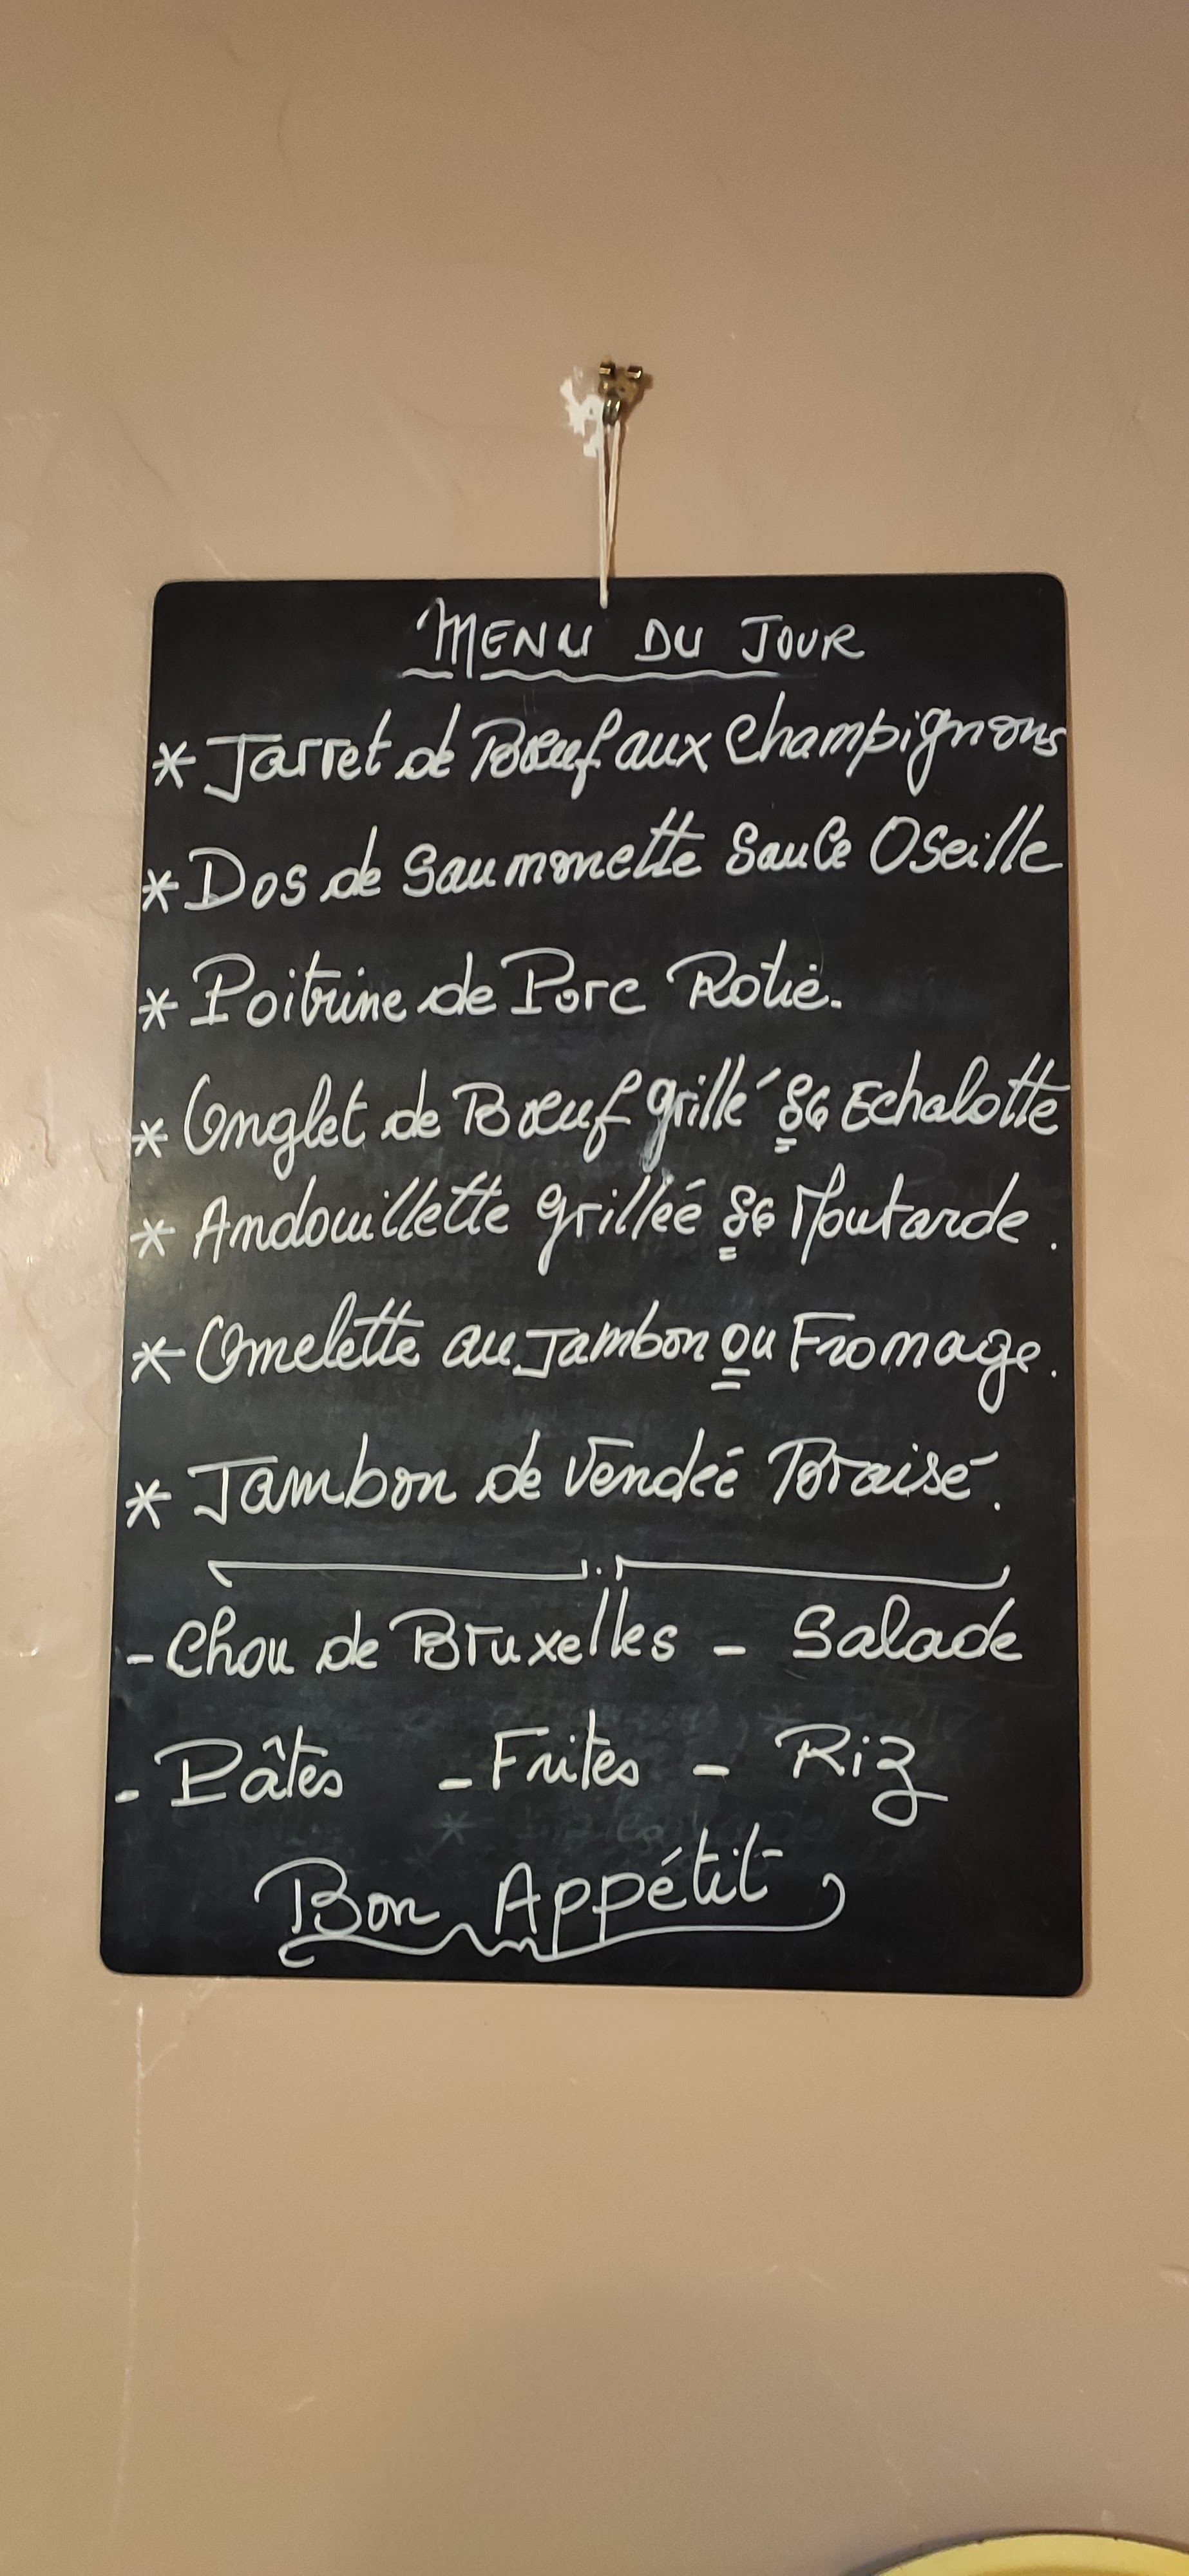 MENU DU JOUR
* Jarret de Bœuf aux Champignons
* Dos de Saumonette Sauce Oseille
* Poitrine de Porc Rotie.
* Onglet de Bœuf grillé Sce Echalotte
* Andouillette grillée Sce Moutarde.
* Omelette au Jambon ou Fromage.
* Jambon de Vendée Braisé.
- Chou de Bruxelles - Salade
- Pâtes - Frites - Riz
Bon Appétit